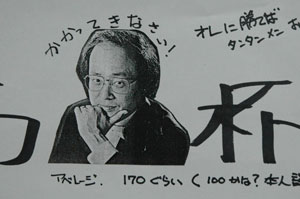 かかってきなさい！
オレに勝てば
タンタンメン お
杯
アベレージ. 170ぐらい く 100かな? 本人